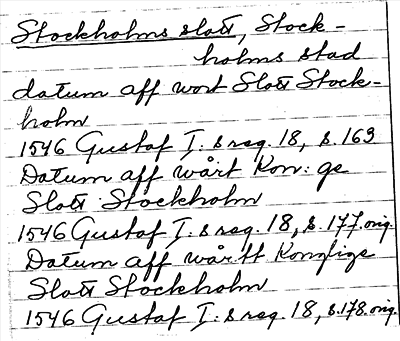 Stockholms slott, Stock-
holms stad
datum aff wort Slott Stock-
holm
1546 Gustaf I:s reg. 18, s. 163
Datum aff wårt Kon: ge
Slott Stockholm
1546 Gustaf I:s reg. 18, s. 177. orig.
Datum aff wårtt Konglige
Slott Stockholm
1546 Gustaf I:s reg. 18, s. 178. orig.